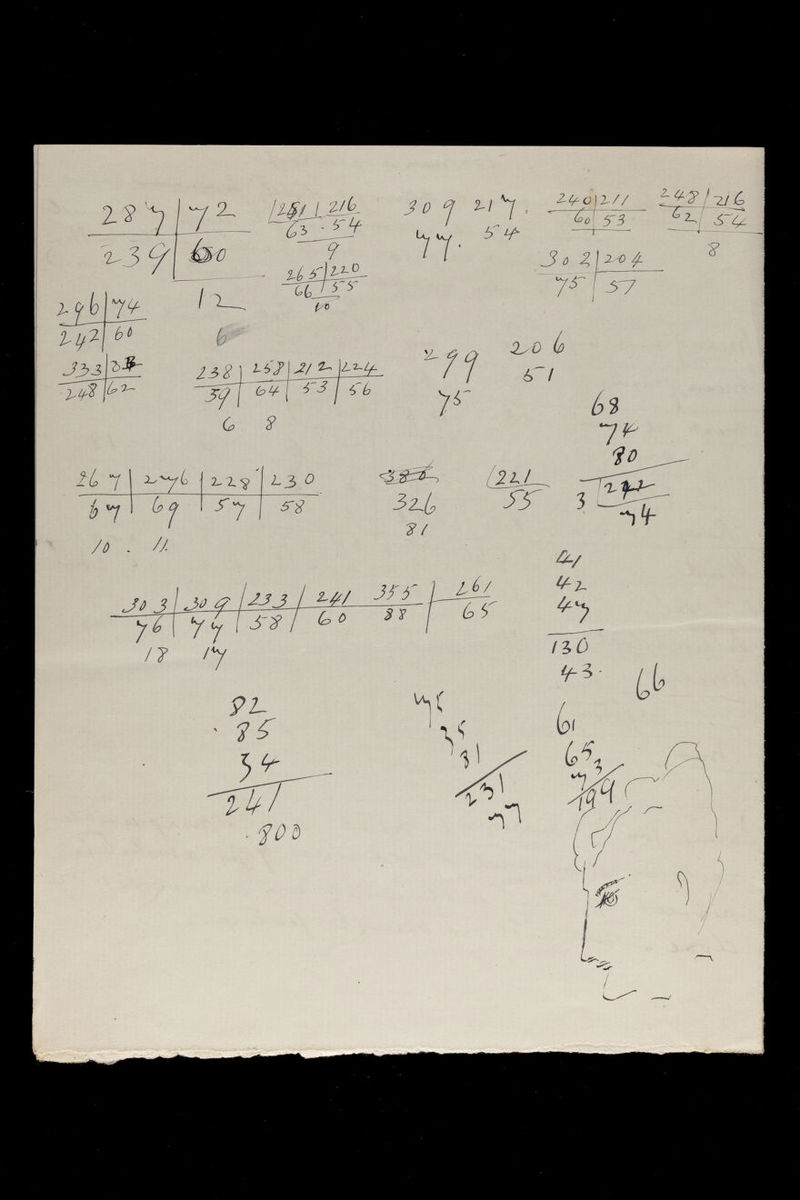 287 | 72
239 | 60
12
6
251 | 216
63 . 54
9
265 | 220
66 | 55
10
309 217.
77. 54
240 | 211
60 | 53
302 | 204
75 | 51
248 | 216
62 | 54
8
296 | 74
242 | 60
333 | 83
248 | 62
238 | 258 | 212 | 224
59 | 64 | 53 | 56
6 8
299 206
75 51
68
74
80
3 | 222
74
267 | 276 | 228 | 230
67 | 69 | 57 | 58
10 . 11.
380
326
81
221
55
303 | 309 | 233 | 241 355 | 261
76 | 77 | 58 | 60 88 | 65
18 17
41
42
47
130
43.
66
82
85
34
241
.800
75
35
31
231
77
61
65
73
199